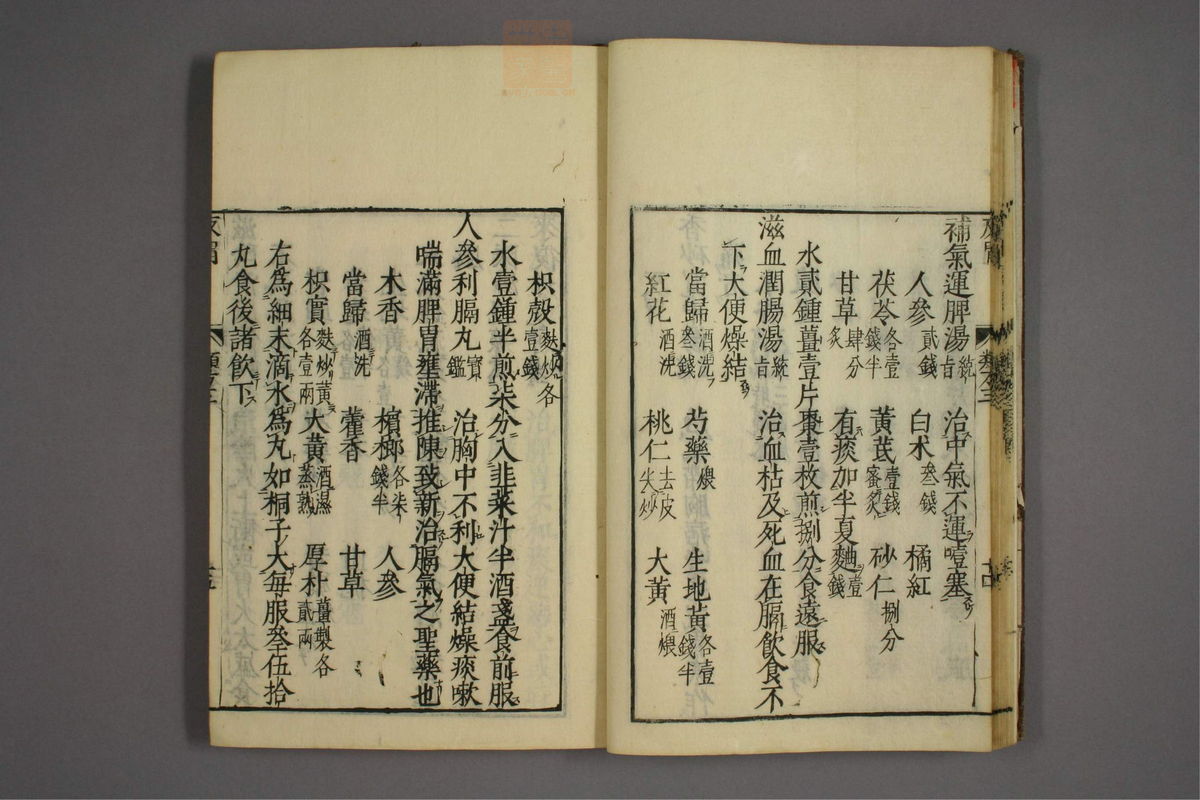 補氣運脾湯統旨 治中氣不運噎塞
人參貳錢 白朮叁錢 橘紅
茯苓各壹錢半 黃芪壹錢蜜炙 砂仁捌分
甘草肆分炙 有痰加半夏麯壹錢
水貳鍾薑壹片棗壹枚煎捌分食遠服
滋血潤腸湯統旨 治血枯及死血在膈飲食不
下大便燥結
當歸酒洗叁錢 芍藥煨 生地黃各壹錢半
紅花酒洗 桃仁去皮尖炒 大黃酒煨
枳殼麩炒各壹錢
水壹鍾半煎柒分入韭菜汁半酒盞食前服
人參利膈丸寶鑑 治胸中不利大便結燥痰嗽
喘滿脾胃壅滯推陳致新治膈氣之聖藥也
木香 檳榔各柒錢半 人參
當歸酒洗 藿香 甘草
枳實麩炒黃各壹兩 大黃酒濕蒸熟 厚朴薑製各貳兩
右為細末滴水為丸如桐子大每服叁伍拾
丸食後諸飲下